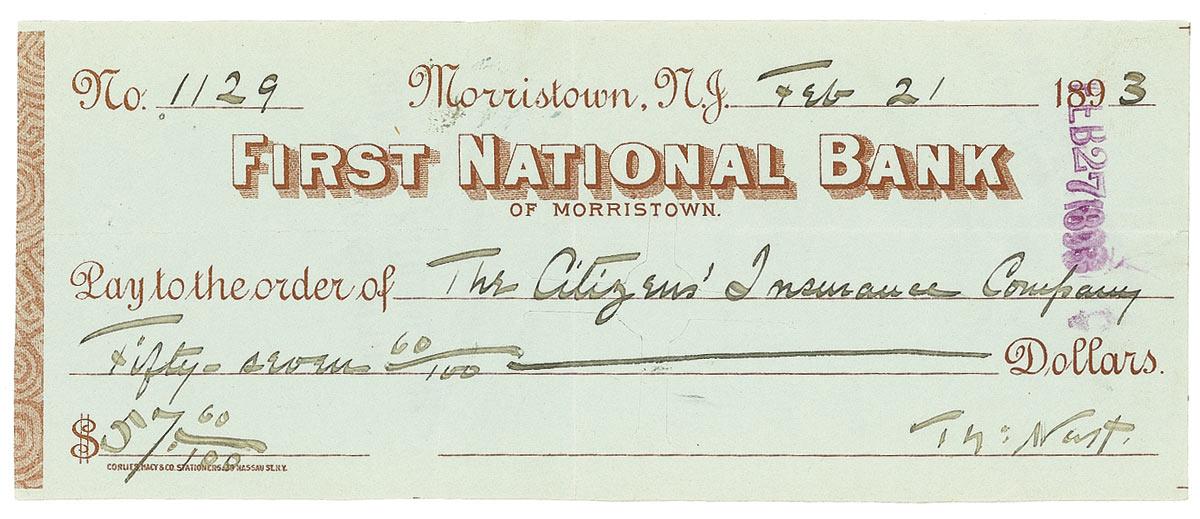 No. 1129 Morristown, N.J. Feb 21 1893
FEB 27 1893
FIRST NATIONAL BANK
OF MORRISTOWN.
Pay to the order of The Citizens' Insurance Company
Fifty-seven 60/100 Dollars.
$57.60/100 Th: Nast.
CORLIES, MACY & CO. STATIONERS, 39 NASSAU ST. N.Y.